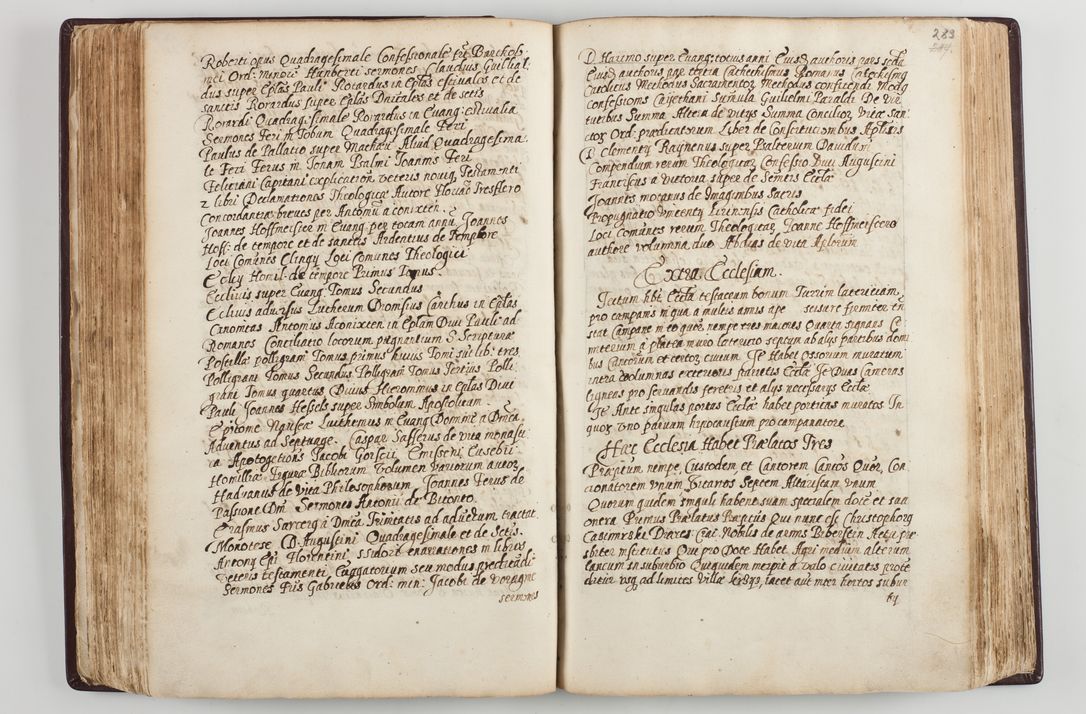 Roberti opus Quadragesimale Confessionale frīs Barthol-
mei Ord: Minorū Humberti sermones Claudius Guilliat
dus super Eplās Pauli Rorardus in Eplās estiuales et de
sanctis Rorardus super Eplās Dnicales et de sctis
Rorardi Quadragesimale Rorardus in Euang: estiualia
Sermones Feri in Tobum Quadragesimale Feri
Paulus de Pallatio super Mathæū Aliud Quadragesima
le Feri Ferus in Jonam Psalmi Joannis Feri
Feliciani Capitani explication veteris noviq Testamenti
2 libri Declamationes Theologicæ Autore
Concordantiæ breues per Antoniū a conixten.
Joannes Hoffmeister in Euang: per totam annū Joannes
Hoff: de tempore et de sanctis Ardentius de Tempore
Loci Comūnes Clingij Loci Comunes Theologici
Eckij Homil: de tempore Primus Tomus
Eccliuis super Euang Tomus Secundus
Eckius adversus Lutherum Dionisius Carthus in Eplās
Canonicas Antonius Aconixten in Eplam Diui Pauli ad
Romanos Conciliatio locorum pugnantium S. Scripturæ
Postilla polligrani Tomus primus huius Tomi sūt lib: tres
Polligrani Tomus Secundus Polligrani Tomus Tertius Polli
grani Tomus quartus Diuus Hieronimus in Eplas Diui
Pauli Joannes Hessels super Simbolum Apostolicum
Epitome Luthemus in Euang Domini a Dnica
Aduentus ad Septuage. Caspar Safferus de vita monasti
ca Apotogetions Jacobi Gorscij Emisseni Eusebij
Homiliæ Figuræ Bibliorum Volumen variorum autor
Haduanus de vita Philosophorum Joannes Ferus de
Passione Dni Sermones Antonii de Bitonto
Erasmus Sarcerg a Dnica Trinitatis ad aduetum tractat
Monotese D. Augustini Quadragesimale et de Sctis.
Antonij Epi Florentini Isidori enarationes in libros
veteris testamenti Fuggatorium seu modus predicādi
Sermones Fris Gabrielis Ord: min: Jacobi de voragine
sermones
283
D Haimo super Euang: totius anni Eiusd authoris pars scda
Eiusd authoris pars tertia Cathechismus Romanus Catechismg
Catolicus Methodus Sacramentor Methodus confitendi Modg
Confessionis Caijethani Sumula Guilielmi Paraldi De vir
tutibus Summa Altera de vitijs Summa Conciliorū Vitæ san
ctor Ord: prædicatorum Liber de Constitutionibus Aplicis
D Clementij Raijnerius super Psalterium Dauidum
Compendium rerum Theologicarū Confessio Diui Augustini
Franciscus a Victoria super de Semtis Ecclā
Joannes moratus de Imaginibus Sacris
Propugnatio vincentij Lirinensis Catholicæ fidei
Loci Comūnes rerum Theologicarū Joanne Hoffmeistero
authore volumina duo Abdias de vita Aplorum
Extra Ecclesiam.
Tectum hbt Eccla testaceam bonum Turrim latericiam
pro campanis in qua a multis annis ape seisare firmiter tn
stat Campane in eo quoq nempe tres maiores Quarta signans Ce
miterium a platea muro lateritio septum ab alijs partibus domi
bus Cantorum et certor ciuium Jt Habet Ossorium muratum
intra columnas exteriores parietis Ecclæ Jt Duas Cameras
ligneas pro seruandis feretris et alijs necessarijs Ecclæ
Jt Ante singulas portas Ecclæ habet porticus muratos In
quor vno paruum hipocaustum pro campanatore
Hæc Ecclesia Habet Prælatos Tres
Præpitum nempe, Custodem et Cantorem Canōs Quor, Con
cionatorem vnum Vicarios Septem Altaristam vnum
Quorum quidem singuli habent suam specialem dotē et sua
onera Primus Prælatus Præptus Qui nunc est Christophorg
Casimirski Decret: Crac: Nobilis de armis Biberstein Aetis pre
sbiter institutus Qui pro Dote Habet Agri medium alterum
laneum in suburbio Quiquidem incipit a valo ciuitatis prote
ditur vsq ad limites villæ jacet aut inter hortos subur
bij